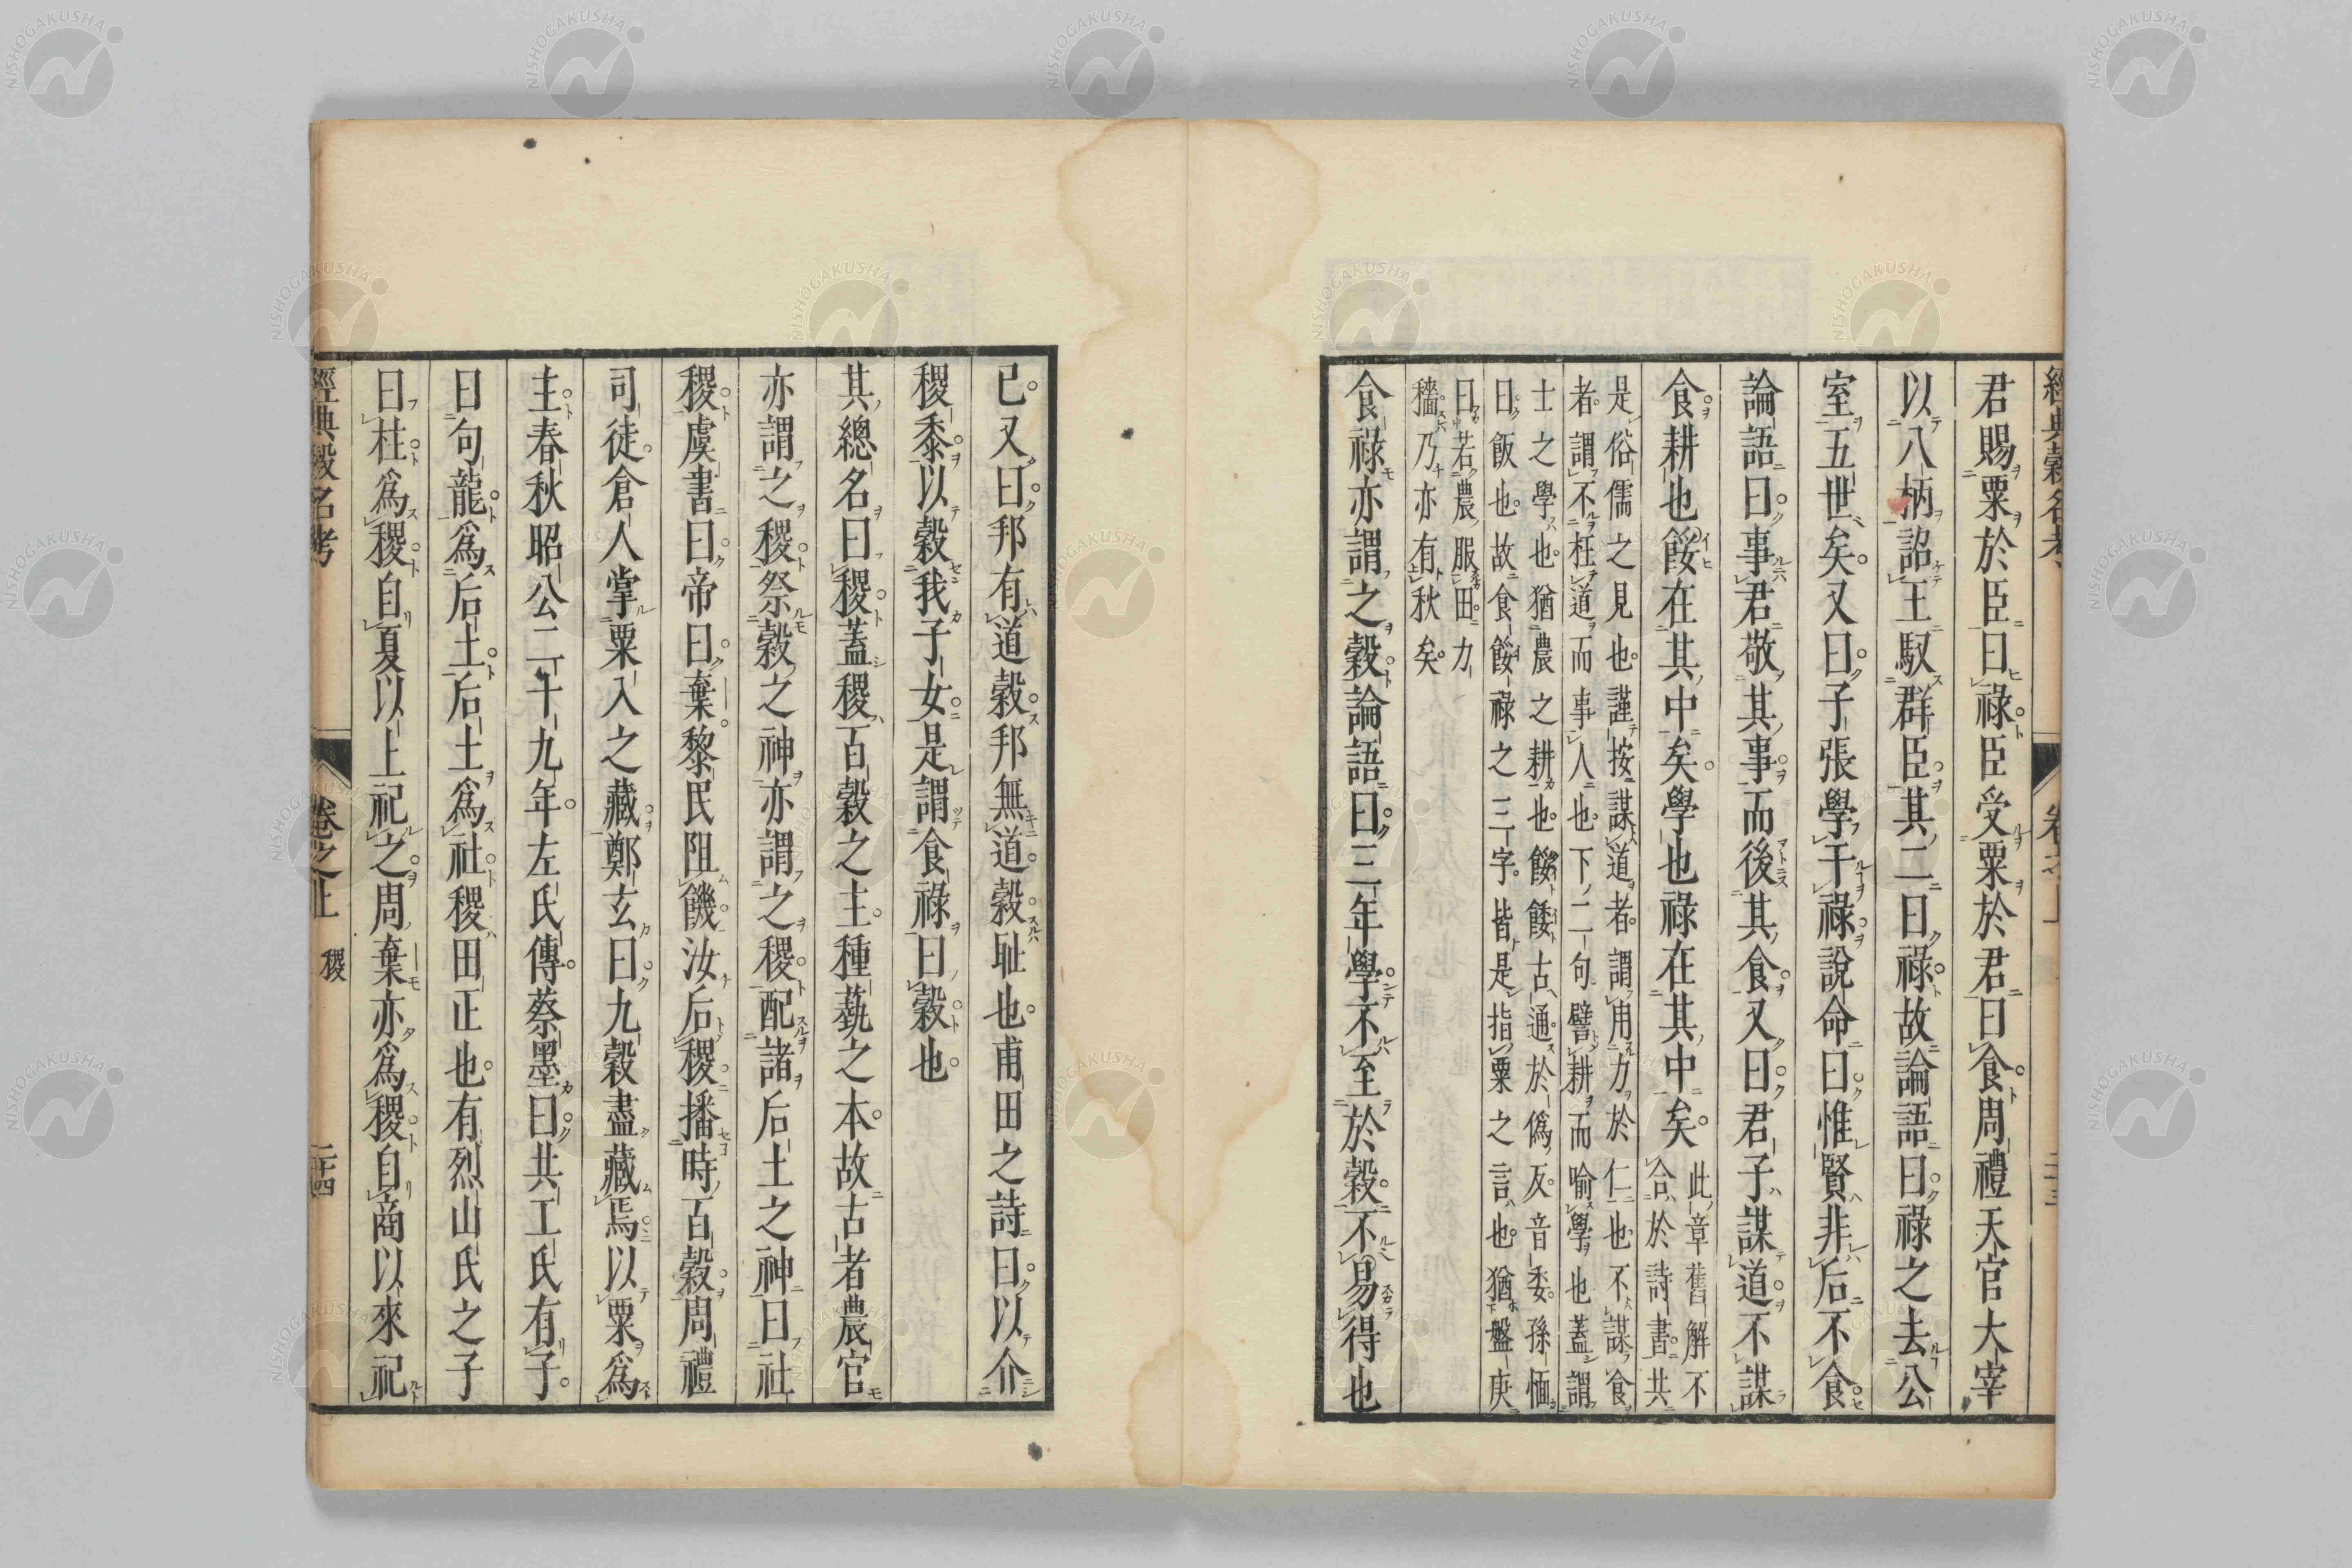 經典穀名考
君賜粟於臣曰祿臣受粟於君曰食周禮天官大宰
以八柄詔王馭群臣其二曰祿故論語曰祿之去公
室五世矣又曰子張學干祿說命曰惟賢非后不食
論語曰事君敬其事而後其食又曰君子謀道不謀
食耕也餒在其中矣學也祿在其中矣
此章舊解不
合於詩書共
是俗儒之見也謹按謀道者謂用力於仁也不謀食
者謂不枉道而事人也下二句譬耕而喻學也蓋謂
士之學也猶農之耕也餒餧古通於僞反音委孫愐
曰飯也故食餒祿之三字皆是指粟之言也猶盤庚
曰若農服田力
穡乃亦有秋矣
食祿亦謂之穀論語曰三年學不至於穀不易得也
已又曰邦有道穀邦無道穀耻也甫田之詩曰以介
稷黍以穀我子女是謂食祿曰穀也
其總名曰稷蓋稷百穀之主種蓺之本故古者農官
亦謂之稷祭穀之神亦謂之稷配諸后土之神曰社
稷虞書曰帝曰棄黎民阻饑汝后稷播時百穀周禮
司徒倉人掌粟入之藏鄭玄曰九穀盡藏焉以粟爲
主春秋昭公二十九年左氏傳蔡墨曰共工氏有子
曰句龍爲后土后土爲社稷田正也有烈山氏之子
曰柱爲稷自夏以上祀之周棄亦爲稷自商以來祀
經典穀名考
卷之上
稷
二十四
NISHOGAKUSHA